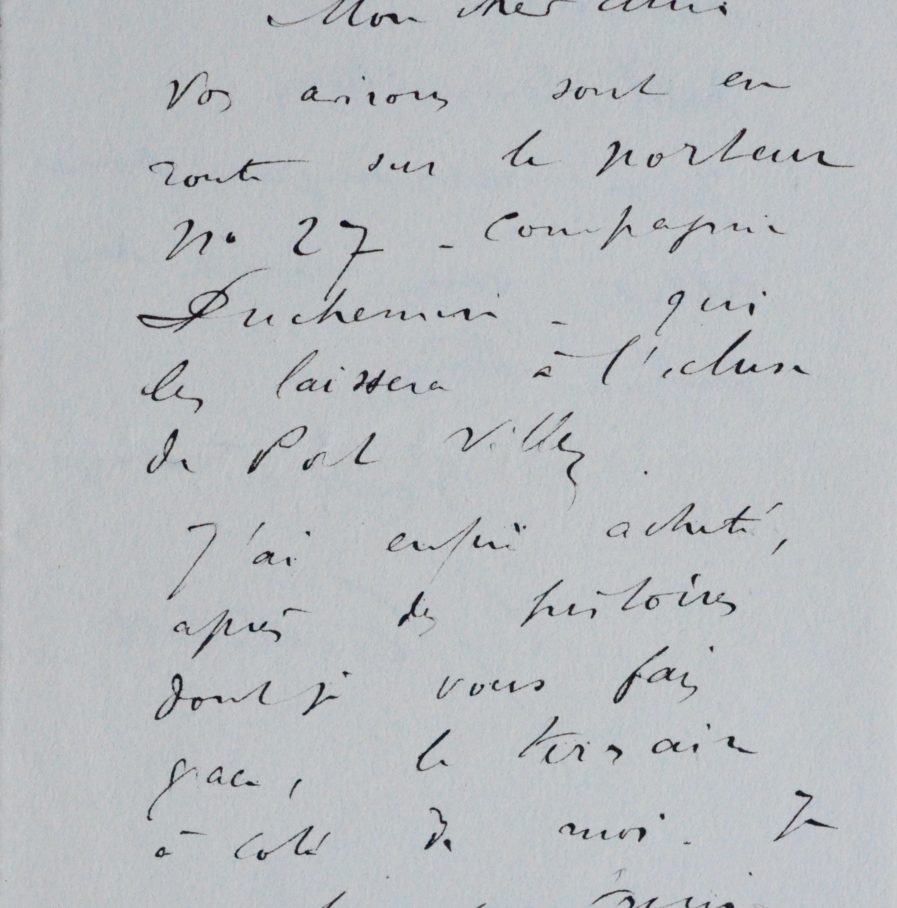 Mon cher ami
Vos avirons sont en
route sur le porteur
No 27 - Compagnie
Duchemin - qui
les laissera à l'écluse
de Port Villez.
J'ai enfin acheté,
après des histoires
dont je vous fais
grace, le terrain
à coté de moi. Je